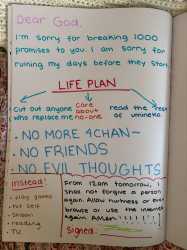 Dear God,
I'm sorry for breaking 1000
promises to you. I am sorry for
ruining my days before they start
LIFE PLAN
Cut out anyone
who replace me
care
about
no-one
read the rest
of umineko
• NO MORE 4CHAN~
• NO FRIENDS
• NO EVIL THOUGHTS
Instead!
- play game
- hit self
- reading
- TV
From 12am tomorrow, I
shall not forgive a person
again. Allow hurtness or even
browse or use the internet
again. Amen!!!!!!
Signed: